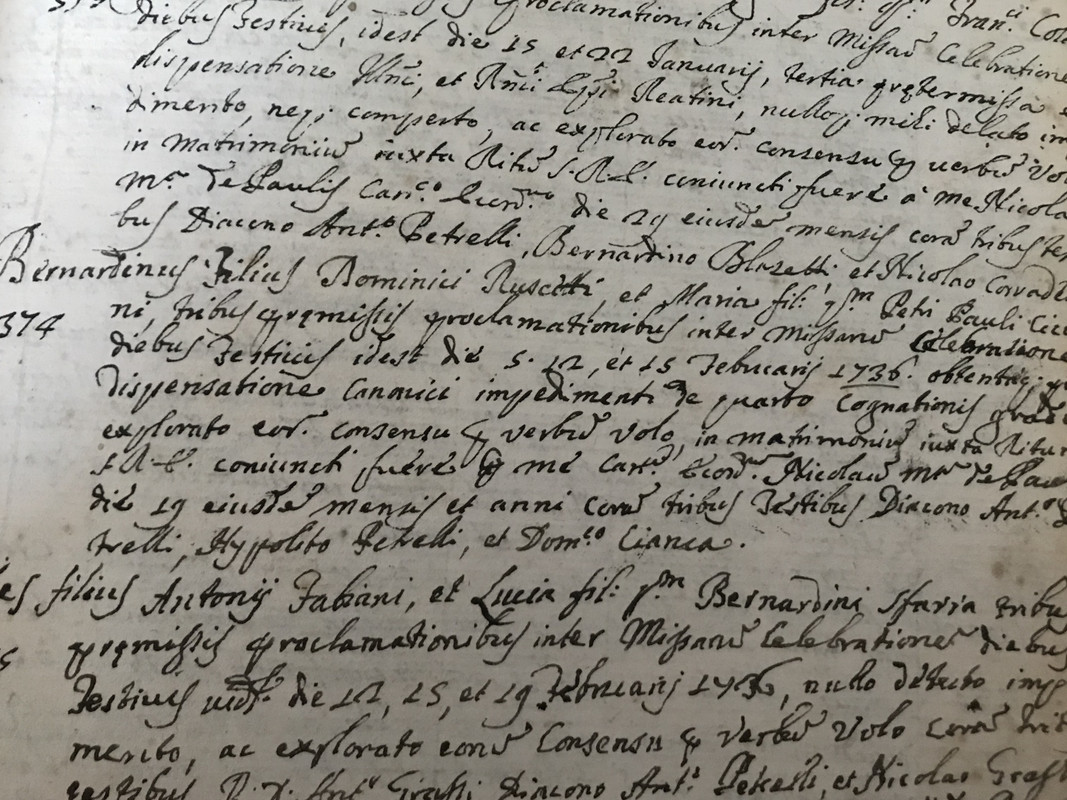 proclamationibus inter Missarū Celebratione
diebus Festivis, idest die 15 et 22 Januarij, tertia prętermissa
dispensatione Illmi, et Rmi Epi Reatini, nulloq; mihi delato im
dimento, neq; comperto, ac explorato eor. consensu p verbū Vol
in Matrimoniū iuxta Ritū S.R.E. coniuncti fuerē à me Nicola
Mᵃ de Paulis Canco Coordno die 29 eiusdē mensis corā tribus tes
bus Diacono Anto Petrelli, Bernardino Blasetti et Nicolao Corrad
Bernardinus Filius Dominici Ruscitti, et Maria fil: qm Petri Pauli Cicc
374 ni, tribus pręmissis proclamationibus inter Missarū Celebratione
diebus Festivis idest die 5. 12, et 15 Februarij 1736. obtentaq;
dispensatione Canonici impedimenti de quarto Cognationis gradu
explorato eor. consensu p verbū Volo, in matrimoniū iuxta Ritum
S.R.E. coniuncti fuerē p me Canc. Coord. Nicolaū Mᵃ de Pau
die 19 eiusdē mensis et anni corā tribus Testibus Diacono Anto
trelli, Hyppolito Petrelli, et Domco Cianca.
es filius Antonij Fabiani, et Lucia fil: qm Bernardini Sfarra tribu
pręmissis proclamationibus inter Missarū Celebrationē diebus
Festivis die 12, 15, et 19 Februarij 1736, nullo detecto imp
mento, ac explorato eorū Consensu p verbū Volo corā tri
testibus Antᵒ Grassi Diacono Antᵒ Petrelli, et Nicolao Grass